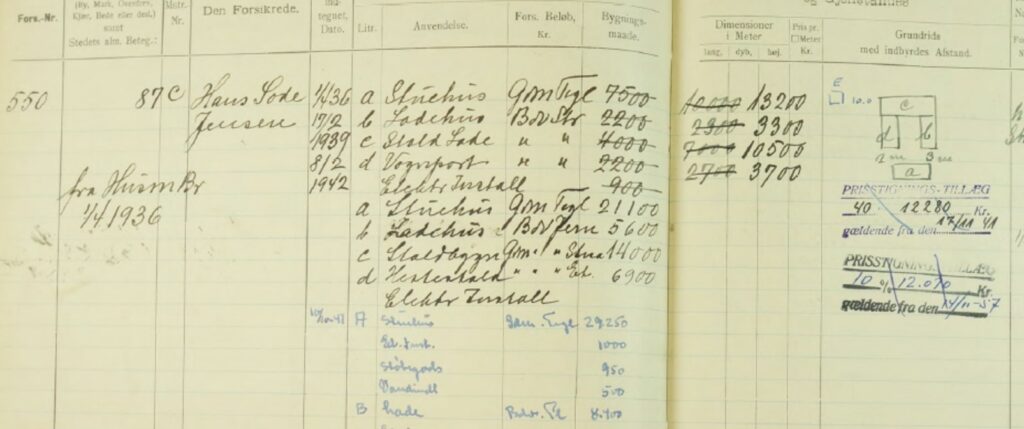 Fors.-Nr.
(By, Mark, Overdrev,
Kjær, Hede eller desl.)
samt
Stedets alm. Beteg.:
Matr.
Nr.
Den Forsikrede.
tegnet,
Dato.
Litr.
Anvendelse.
Fors. Beløb,
Kr.
Bygnings-
maade.
Dimensioner
i Meter
lang, dyb, høj.
Pris pr.
□Meter
Kr.
Grundrids
med indbyrdes Afstand.
550 87c Hans Sode 1/4 36 a Stuehus Grm Tegl 7500 10000 13200
Jensen 17/2 b Ladehus Bdv Str 2200 2300 3300
1939 c Stald Lade " " 4000 7000 10500
8/2 d Vognport " " 2200 2700 3700
fra Husm Br 1942 Elektr Install 900
1/4 1936 a Stuehus Grm Tegl 21100
b Ladehus Bdv Jern 5600
c Staldbygn Grm " 14000
d Hestestald " " 6900
Elektr Install
A Stuehus Grm. Tegl 29250
El. Inst. 1000
Støbegods 950
Vandindl 500
B Lade 8.400
E
10.0
c
d b
2 m 3 m
a
PRISSTIGNINGS-TILLÆG
40 12280 Kr.
gældende fra den 17/11 41
PRISSTIGNINGS-TILLÆG
10 % 12.070 Kr.
gældende fra den